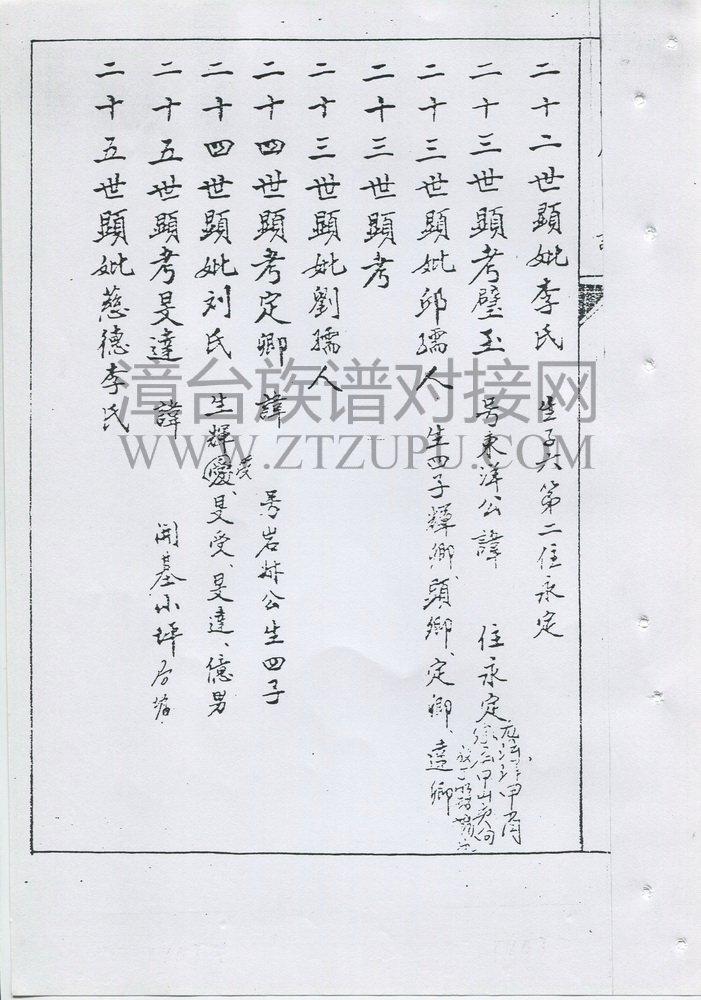 二十二世顯妣李氏 生子六第二住永定
二十三世顯考璧玉 号東洋公諱 住永定
二十三世顯妣邱孺人 生四子輝卿、頭卿、定卿、達卿
二十三世顯考
二十三世顯妣劉孺人
二十四世顯考定卿 諱 号岩林公生四子
二十四世顯妣刘氏 生輝愛、旻受、旻達、億男
二十五世顯考旻達 諱 開基小坪
二十五世顯妣慈德李氏
漳台族谱对接网
WWW.ZTZUPU.COM